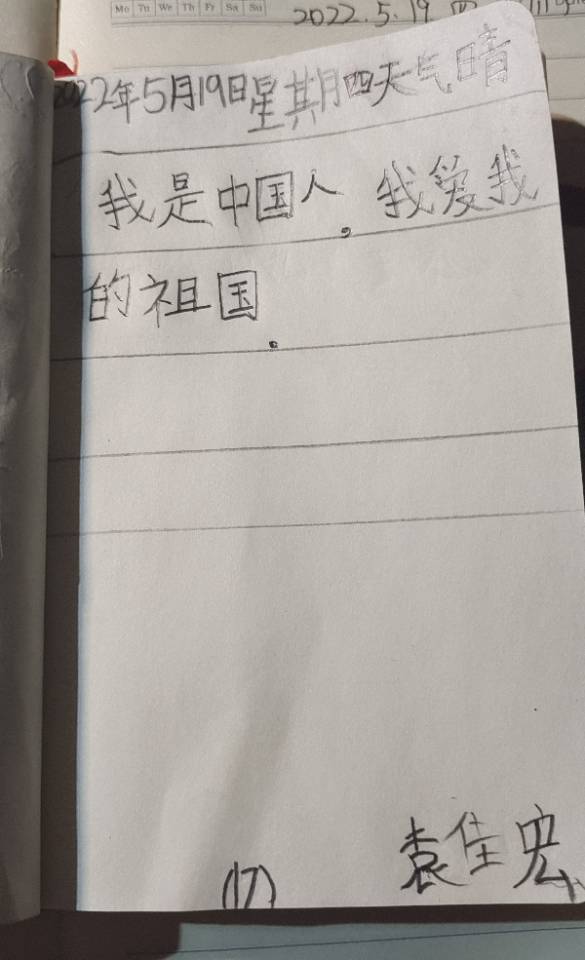 Mo Tu We Th Fr Sa Su
2022.5.19 四
2022年5月19日星期四天气晴
我是中国人，我爱我
的祖国.
(17)
袁佳宏